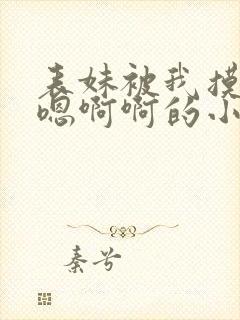 表妹被我摸
嗯啊啊的小
秦兮